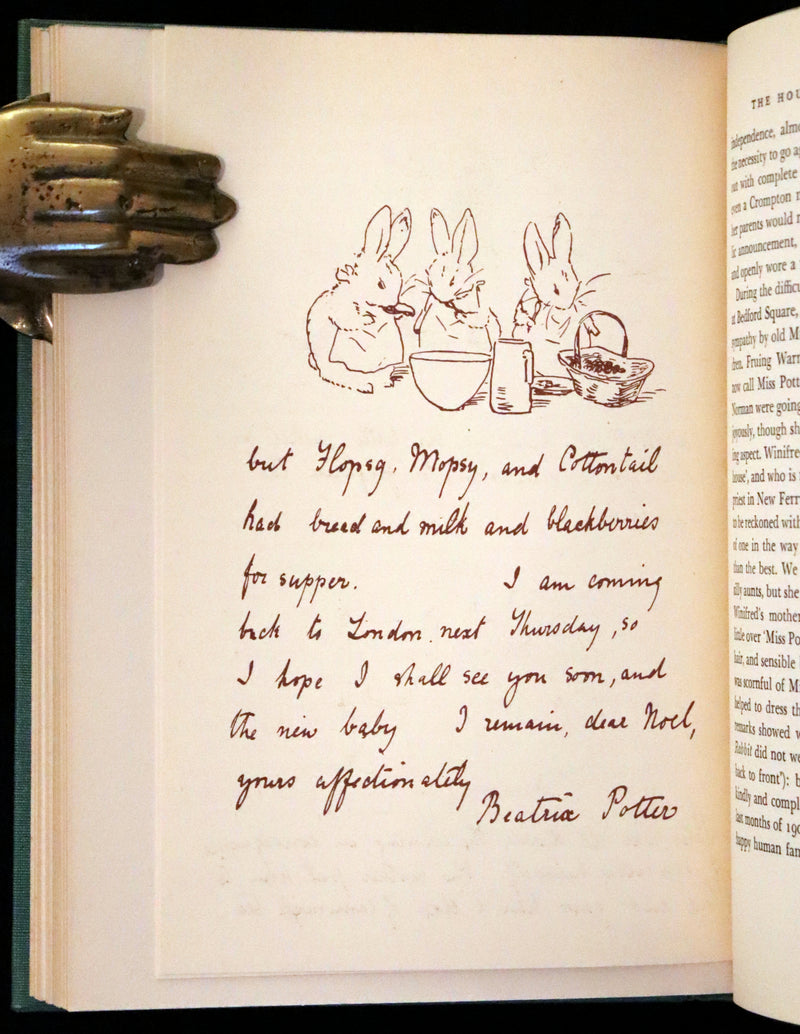 but Flopsy, Mopsy, and Cottontail
had bread and milk and blackberries
for supper. I am coming
back to London next Thursday, so
I hope I shall see you soon, and
the new baby I remain, dear Noel,
yours affectionately
Beatrix Potter
THE HOU
independence, almo
the necessity to go a
out with complete
even a Crompton
her parents would
announcement,
and openly wore a
During the difficu
at Bedford Square,
sympathy by old M
Fruing Warn
now call Miss Pott
Norman were going
joyously, though sh
ing aspect. Winifre
house', and who is
priest in New Ferr
to be reckoned with
of one in the way
than the best. We
silly aunts, but she
Winifred's mother
little over 'Miss Po
hair, and sensible
was scornful of M
helped to dress th
remarks showed
Rabbit did not we
back to front"): b
kindly and compl
last months of 190
happy human fam